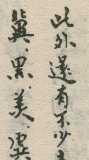 此外還有不少
冀眾美